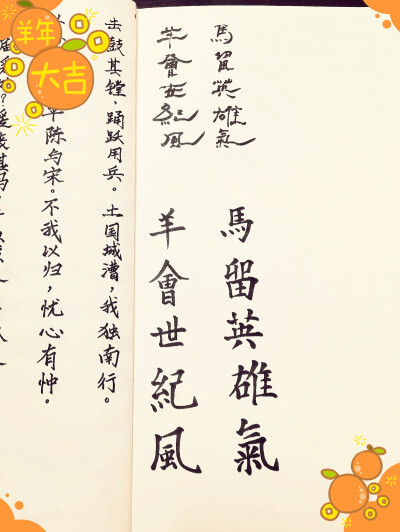 羊年
大吉
馬留英雄氣
羊會世紀風
馬留英雄氣
羊會世紀風
击鼓其镗，踊跃用兵。土国城漕，我独南行。
平陈与宋。不我以归，忧心有忡。